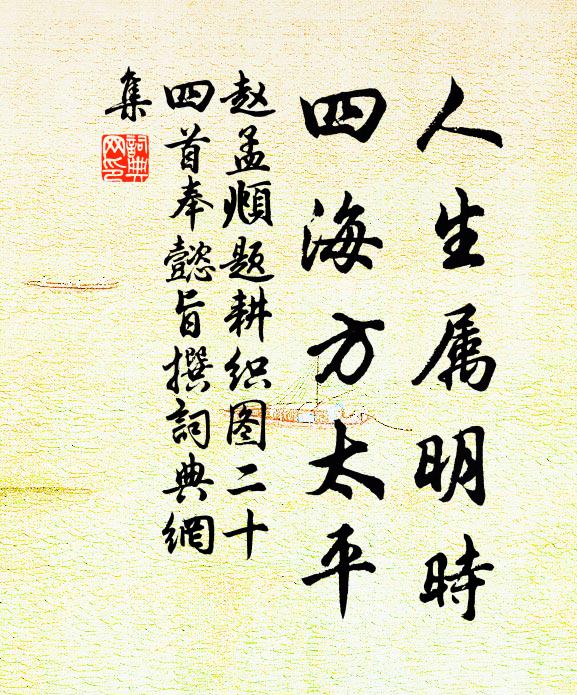 人生属明時
四海方太平
赵孟頫题耕织图二十
四首奉懿旨撰詞典網
集
詞典
网印